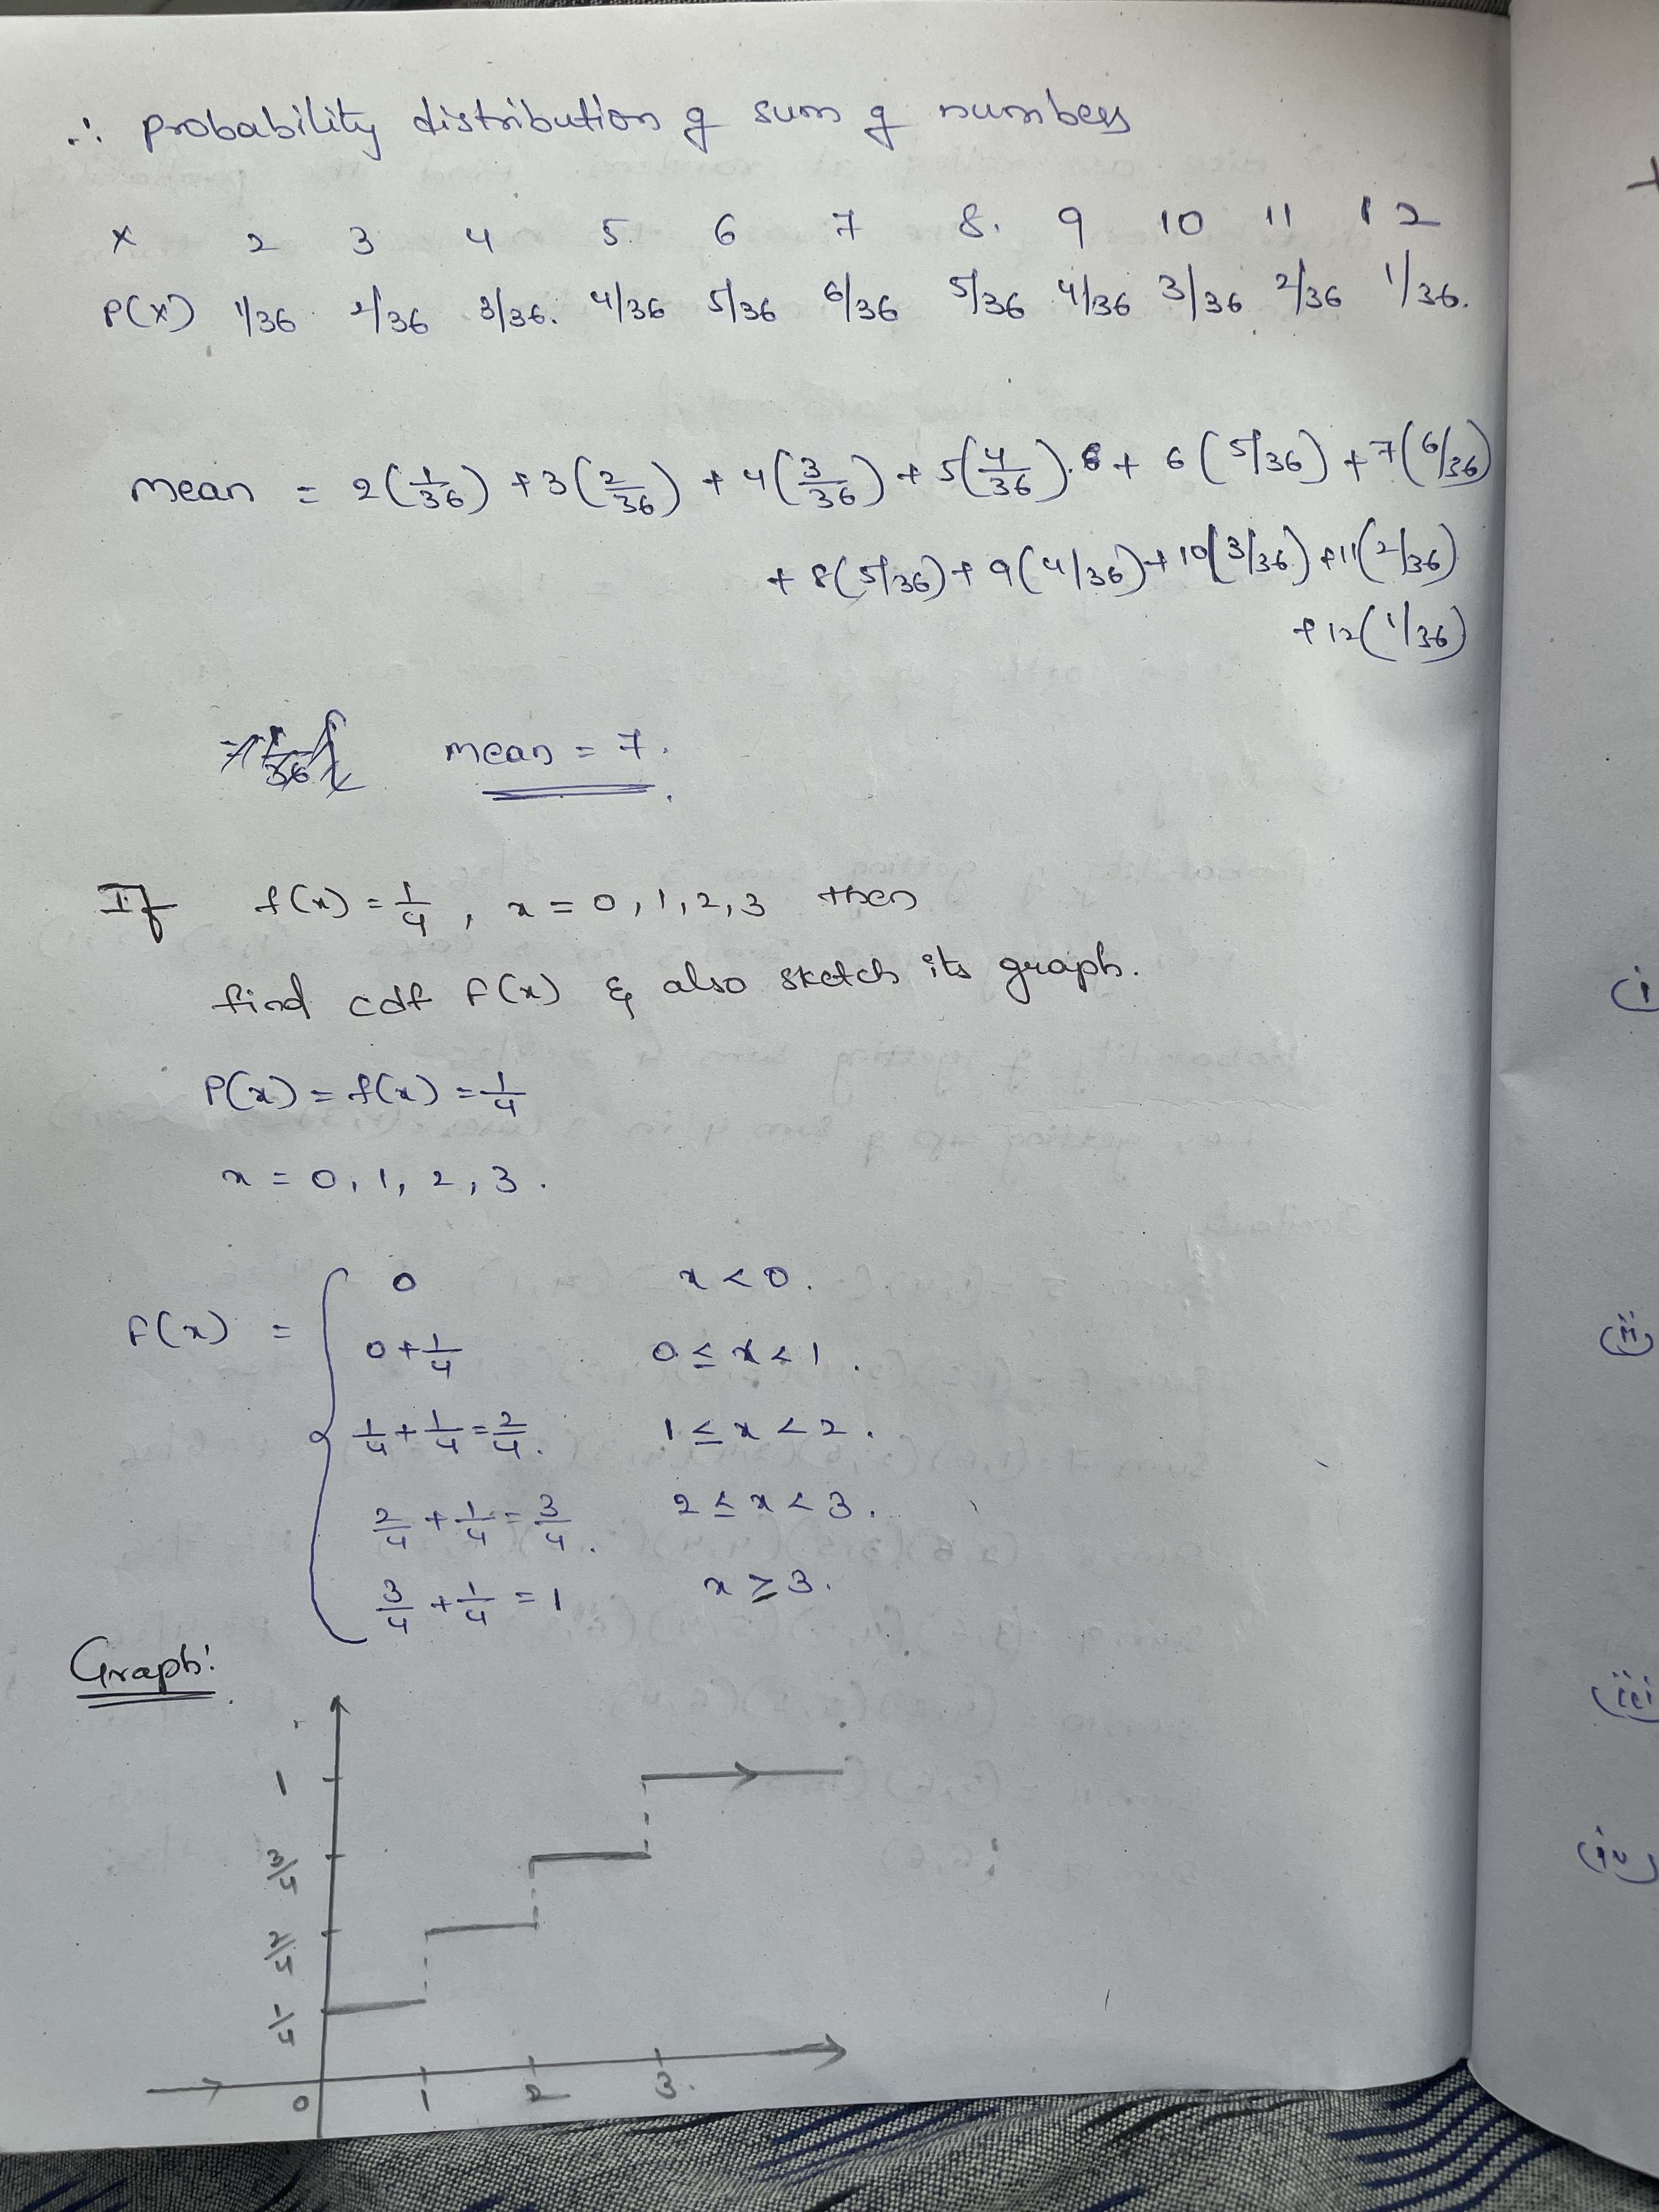 ∴ probability distribution of sum of numbers
x 2 3 4 5. 6 7 8. 9 10 11 12
P(x) 1/36 2/36 3/36. 4/36 5/36 6/36 5/36 4/36 3/36 2/36 1/36.
mean = 2(1/36) + 3(2/36) + 4(3/36) + 5(4/36) + 6(5/36) + 7(6/36)
+ 8(5/36) + 9(4/36) + 10(3/36) + 11(2/36)
+ 12(1/36)
mean = 7.
If f(x) = 1/4, x = 0, 1, 2, 3 then
find cdf F(x) & also sketch its graph.
P(x) = f(x) = 1/4
x = 0, 1, 2, 3.
F(x) = { 0 x < 0.
0 + 1/4 0 ≤ x < 1.
1/4 + 1/4 = 2/4. 1 ≤ x < 2.
2/4 + 1/4 = 3/4. 2 ≤ x < 3.
3/4 + 1/4 = 1 x ≥ 3.
Graph:
1
3/4
2/4
1/4
0 1 2 3.
(i)
(ii)
(iii)
(iv)